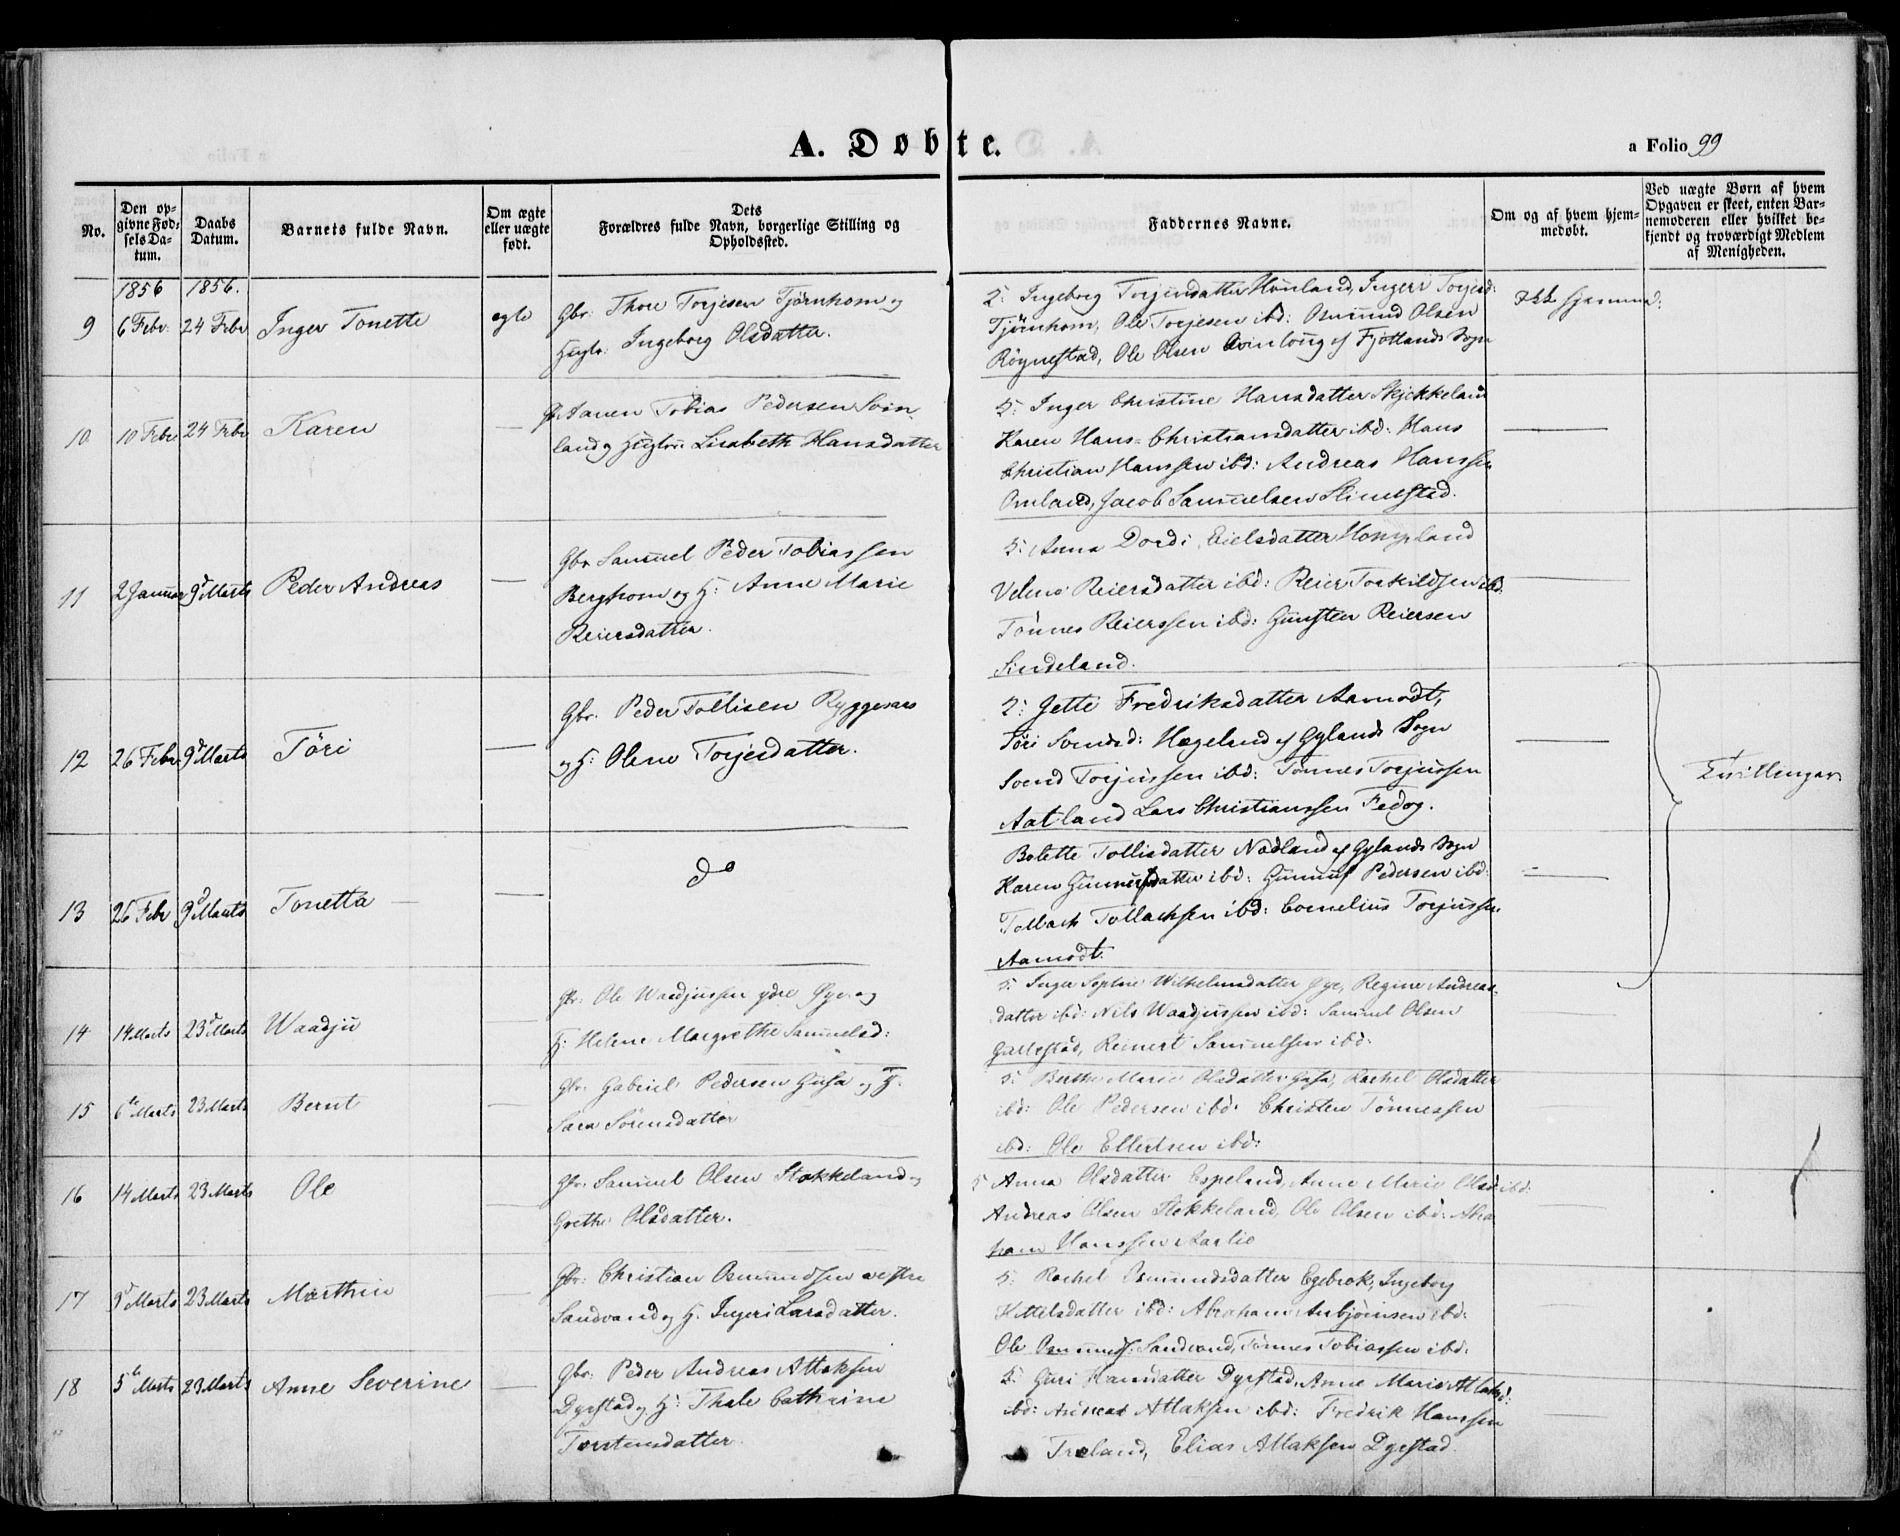 A. Døbte.
a Folio 99
No.
Den op-
givne Fød-
sels Da-
tum.
Daabs
Datum.
Barnets fulde Navn.
Om ægte
eller uægte
født.
Dets
Forældres fulde Navn, borgerlige Stilling og
Opholdssted.
Faddernes Navne.
Om og af hvem hjem-
medøbt.
Ved uægte Børn af hvem
Opgaven er skeet, enten Bar-
nemoderen eller hvilket be-
kjendt og troværdigt Medlem
af Menigheden.
1856 1856.
9 6 Febr: 24 Febr Inger Tonette egte
Gbr: Thore Torjesen Tjørnhom og
Ingeborg Olsdatter.
5: Ingeborg Torjusdatter Hunland, Ingeri Torjesd:
Tjørnhom, Ole Torjesen ibd: Osmund Olsen
Røynestad, Ole Olsen af Fjotlands Sogn
Ikke hjemmed:
10 10 Febr 24 Febr Karen —
Tobias Pedersen Svin-
land og Lisabeth Hansdatter
5: Inger Christine Hansdatter Skjekkeland
Karen Hans-Christiansdatter ibd: Hans
Christian Hanssen ibd: Andreas Hanssen
Omland, Jacob Samuelsen Slimestad.
11 2 Januar 9d Marts Peder Andreas —
Gbr Samuel Peder Tobiassen
Berghom og H: Anne Marie
Reiersdatter.
5: Anna Dordi Eielsdatter Hompland
Velene Reiersdatter ibd: Reier Torkildsen ibd:
Tönnes Reierssen ibd: Gunsten Reiersen
Sindeland.
12 26 Febr 9d Marts Töri —
Gbr. Peder Tollisen Ryggesaas
og H: Olene Torjesdatter.
5: Jette Fredriksdatter Aamodt,
Töri Svendsd: Hægeland af Gylands Sogn
Svend Torjussen ibd: Tönnes Torjussen
Aatland Lars Christianssen Fedog.
Tvillinger
13 26 Febr 9d Marts Tonetta —
do
Bolette Tollisdatter Nødland af Gylands Sogn
Karen Gunnufsdatter ibd: Gunnuf Pedersen ibd:
Tollach Tollachsen ibd: Cornelius Torjussen
Aamodt.
14 14 Marts 23d Marts Waadju
Gbr: Ole Waadjussen ydre Øye og
H: Helene Margrethe Samuelsd:
5: Inger Sophie Wilhelmsdatter Øye, Regine Andreas-
datter ibd: Nils Waadjussen ibd: Samuel Olsen
Gullestad, Reinert Samuelsen ibd:
15 6te Marts 23 Marts Bernt
Gbr: Gabriel Pedersen Gusa og H:
Sara Sörensdatter
5: Berthe Marie Olsdatter Gusa, Rachel Olsdatter
ibd: Ole Pedersen ibd: Christen Tönnessen
ibd: Ole Ellertsen ibd:
16 14 Marts 23 Marts Ole
Gbr: Samuel Olsen Stokkeland og
Grethe Olsdatter.
5 Anna Olsdatter Espeland, Anne Marie Olsd ibd:
Andreas Olsen Stokkeland Ole Olsen ibd: Abra-
ham Hanssen Aarlie
17 3d Marts 23 Marts Marthin
Gbr: Christian Osmundsen vestre
Sandvand og H: Ingeri Larsdatter.
5: Rachel Osmundsdatter Egebrok, Ingeborg
Kittelsdatter ibd: Abraham Asbjörnsen ibd:
Ole Osmunds. Sandvand, Tönnes Tobiassen ibd:
18 5te Marts 23 Marts Anne Severine —
Gbr: Peder Andreas Atlaksen
Dyrstad og H: Thale Cathrine
Torstensdatter.
5: Guri Hansdatter Dyrstad, Anne Marie Atlaksd:
ibd: Andreas Atlaksen ibd: Fredrik Hanssen
Træland, Elias Atlaksen Dyrstad.